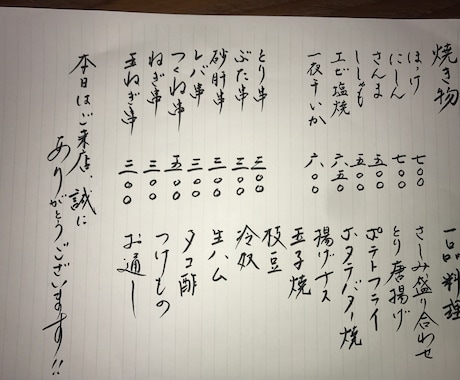 焼き物
ほっけ 七〇〇
にしん 七〇〇
さんま 五〇〇
ししゃも 五〇〇
エビ塩焼 六五〇
一夜干いか 六〇〇
とり串 三〇〇
ぶた串 三〇〇
砂肝串 三〇〇
レバ串 三〇〇
つくね串 五〇〇
ねぎ串 三〇〇
玉ねぎ串 三〇〇
一品料理
さしみ盛り合わせ
とり唐揚げ
ポテトフライ
ホタテバター焼
揚げナス
玉子焼
枝豆
冷奴
生ハム
タコ酢
つけもの
お通し
本日はご来店、誠に
ありがとうございます!!